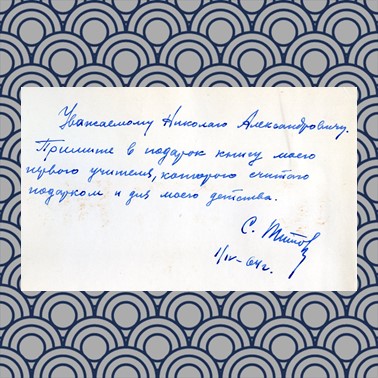 Уважаемому Николаю Александровичу.
Примите в подарок книгу моего
первого учителя, которого считаю
подарком и для моего детства.
С. Титов
1/IV-64г.